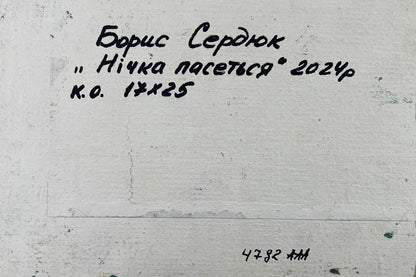 Борис Сердюк
„ Нічка пасеться" 2024р
к.о. 17х25
4792 ААА